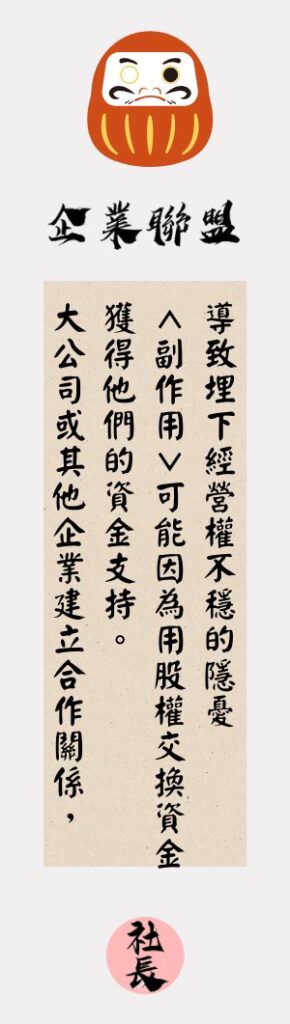 企業聯盟
大公司或其他企業建立合作關係，
獲得他們的資金支持。
＜副作用＞可能因為用股權交換資金
導致埋下經營權不穩的隱憂
社長